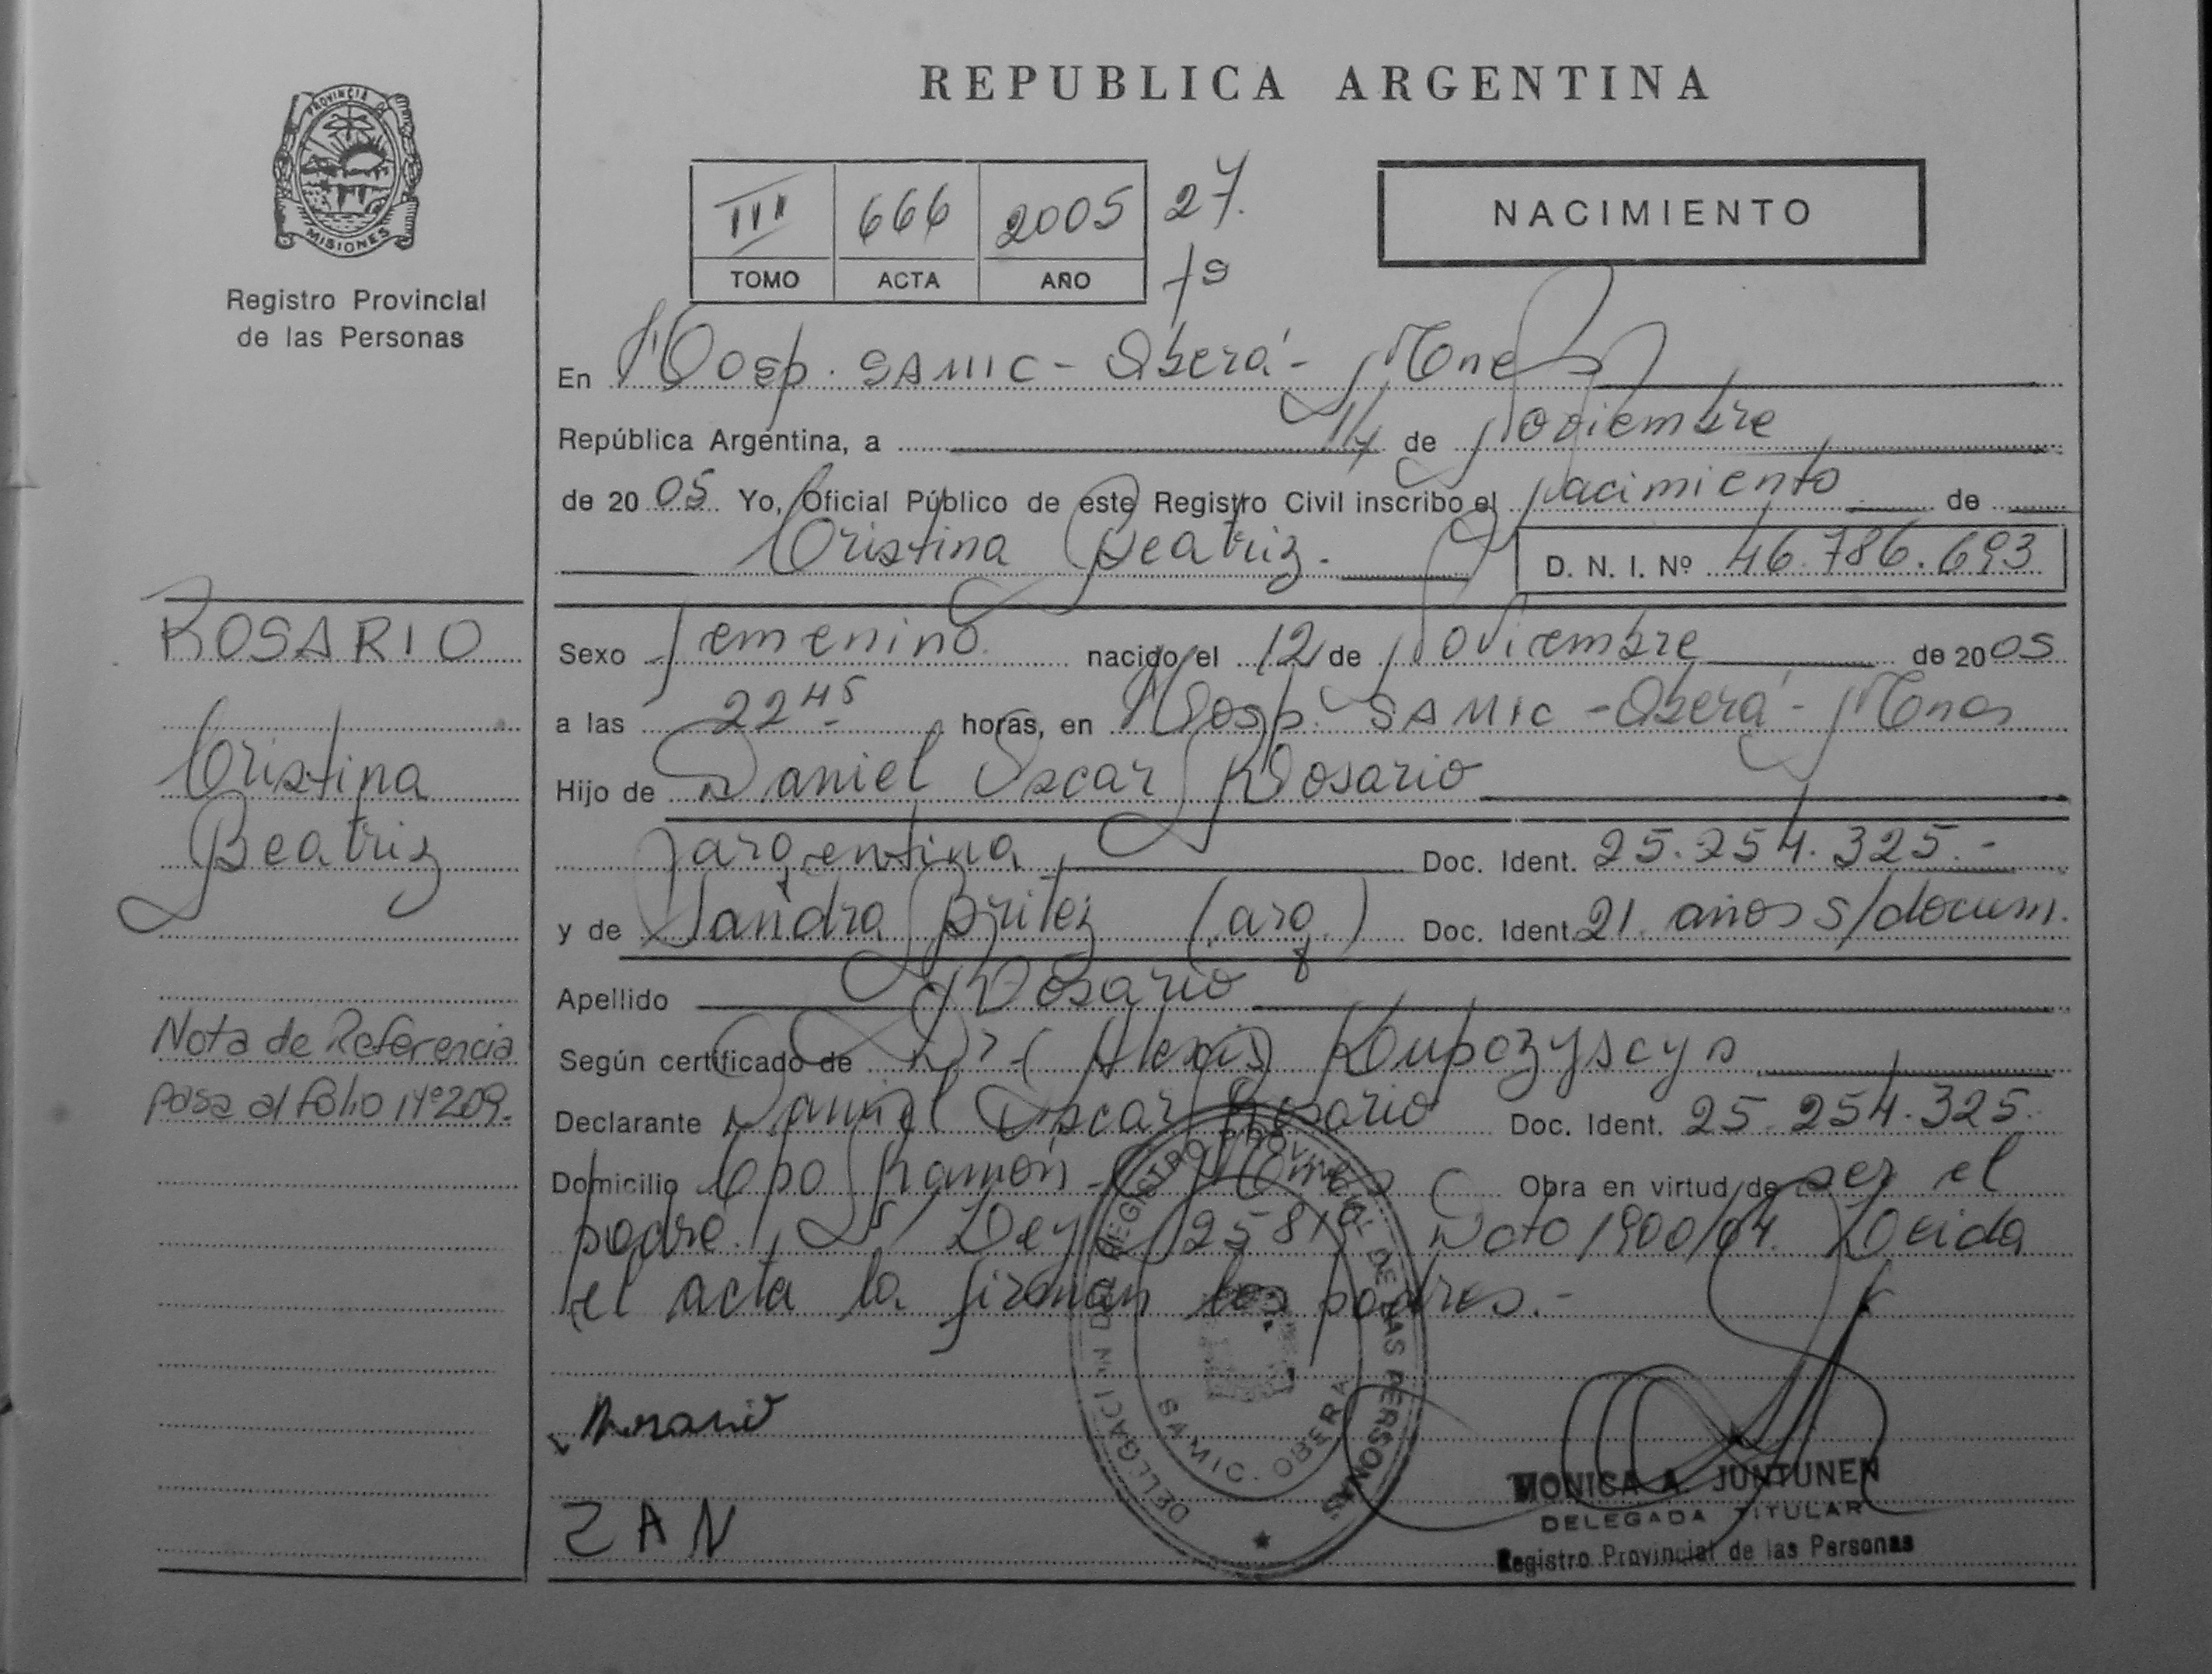 REPUBLICA ARGENTINA
PROVINCIA DE
MISIONES
Registro Provincial
de las Personas
III 666 2005 27.
TOMO ACTA AÑO fº
NACIMIENTO
En Hosp. SAMIC - Oberá - Mnes
República Argentina, a 14 de Noviembre
de 20 05 Yo, Oficial Público de este Registro Civil inscribo el Nacimiento de
Cristina Beatriz.
D. N. I. Nº 46.786.693
ROSARIO
Cristina
Beatriz
Nota de Referencia
pasa al folio Nº 209.
Sexo femenino nacido el 12 de Noviembre de 20 05
a las 22 45 horas, en Hosp. SAMIC - Oberá - Mnes
Hijo de Daniel Oscar Rosario
argentina Doc. Ident. 25.254.325.-
y de Sandra Britez (arg.) Doc. Ident. 21 años s/docum.
Apellido Rosario
Según certificado de Dr. (Alexis)
Declarante Daniel Oscar Rosario Doc. Ident. 25.254.325.
Domicilio Cpo Ramón - Mnes Obra en virtud de ser el
padre. Ley 25819 Dcto 1900/04. Leida
el acta la firman los padres.-
DELEGACION DEL REGISTRO PROVINCIAL DE LAS PERSONAS
SAMIC. OBERA
ZAN
MONICA A. JUNTUNEN
DELEGADA TITULAR
Registro Provincial de las Personas